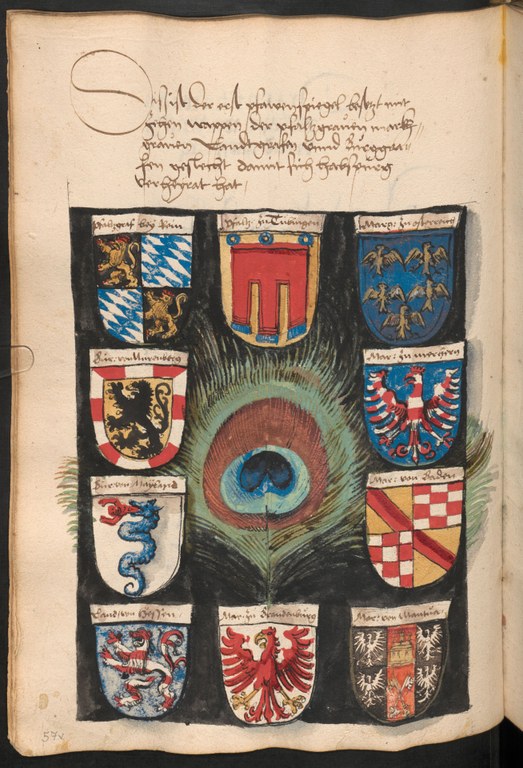 Das ist der erst pfawenspiegel besetzt mit
zehen wappen der pfaltzgrauen marck
grauen Landtgrafen vnnd Burggra
fen geslecht damit sich habspurg
verheyrat hat
Pfaltzgraf bey Rein
Pfaltz zu Tubingen
Marg: zu osterreich
Bur: von Nurenberg
Mar: zu merhern
Bur: von Mayland
Mar: von Baden
Land: von Hessen
Mar: zu Brandenburg
Mar: von Mantua
57v